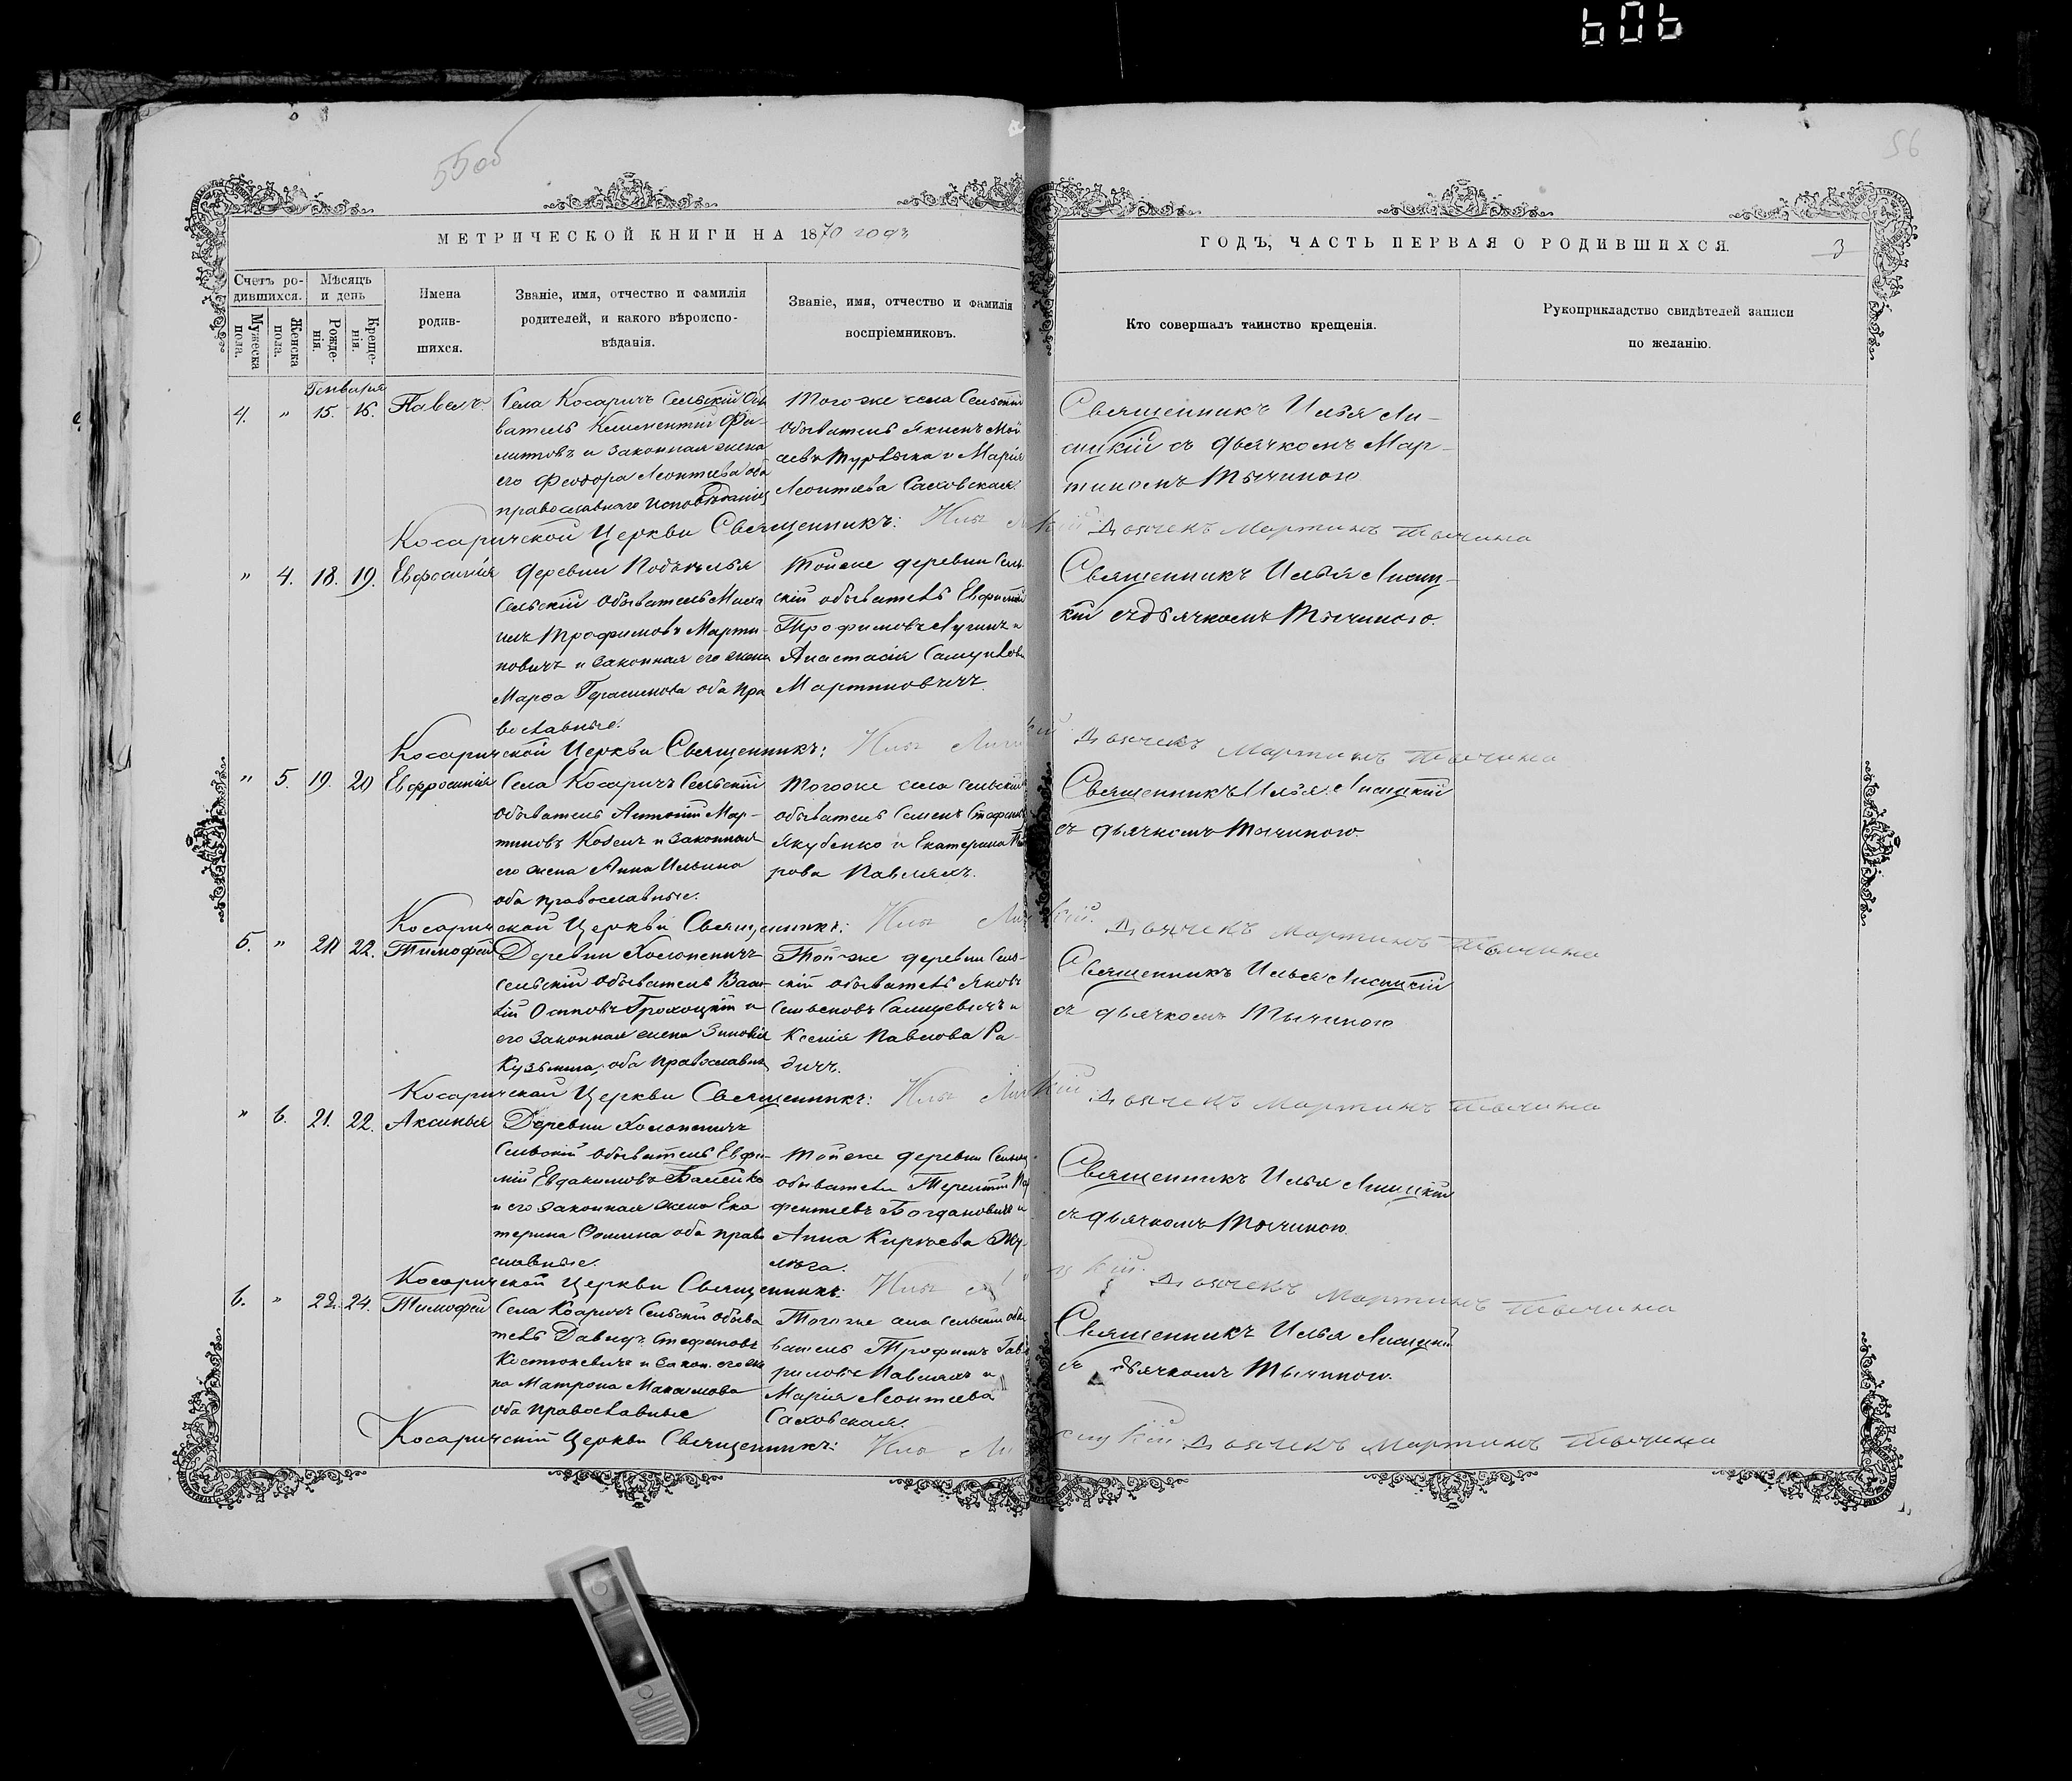 606
55об
56
МЕТРИЧЕСКОЙ КНИГИ НА 1870 годъ
ГОДЪ, ЧАСТЬ ПЕРВАЯ О РОДИВШИХСЯ.
3
Счетъ ро-
дившихся.
Мужеска
пола.
Женска
пола.
Мѣсяцъ
и день
Рожде-
нія.
Креще-
нія.
Имена
родив-
шихся.
Званіе, имя, отчество и фамилія
родителей, и какого вѣроиспо-
вѣданія.
Званіе, имя, отчество и фамилія
воспріемниковъ.
Кто совершалъ таинство крещенія.
Рукоприкладство свидѣтелей записи
по желанію.
Генваря
4. " 15. 16. Павелъ.
Села Косаричъ Сельскій Обы
ватель Климентій Фи-
липовъ и законная жена
его Феодора Леонтьева оба
православнаго исповѣданія
Того же села Сельскій
обыватель Якимъ Мои
сеевъ и Марія
Леонтьева Саховская.
Священникъ Илья Ли-
сицкій съ дьячкомъ Мар-
тиномъ Тычиною
Косаричской Церкви Священникъ: Илья Дьячекъ Мартинъ Тычина
" 4. 18. 19. Евфросинія
деревни
Сельскій обыватель Миха
илъ Трофимовъ Марти-
новичъ и законная его жена
Марѳа Герасимова оба пра
вославные.
Тойже деревни Сель
скій обыватель Евфимій
Трофимовъ Лучинъ и
Анастасія
Мартиновичъ.
Священникъ Илья Лисиц-
кій съ дьячкомъ Тычиною.
Косаричской Церкви Священникъ: Илья Дьячекъ Мартинъ Тычина
" 5. 19. 20 Евфросинія
Села Косаричъ Сельскій
обыватель Антоній Мар-
тиновъ Козелъ и законная
его жена Анна Ильина
оба православные.
Того же села сельскій
обыватель Семенъ Стефановъ
Якубенко и Екатерина
рова Павлюкъ.
Священникъ Илья Лисицкій
съ дьячкомъ Тычиною
Косаричской Церкви Священникъ: Илья Дьячекъ Мартинъ Тычина
5. " 21 22. Тимофей
Деревни Холопеничъ
сельскій обыватель Васи-
лій Осиповъ и
его законная жена Зиновія
Кузьмина, оба православные
Той же деревни Сель-
скій обыватель Яковъ
и
Ксенія Павлова Ра-
дичъ.
Священникъ Илья Лисицкій
съ дьячкомъ Тычиною
Косаричской Церкви Священникъ: Илья Дьячекъ Мартинъ Тычина
" 6. 21. 22. Аксинья
Деревни Холопеничъ
Сельскій обыватель Евфи-
мій Евдокимовъ
и его законная жена Ека
терина Ѳомина оба право
славные.
Той же деревни Сельскій
обыватель Терентій
фентіевъ Богдановичъ и
Анна Кирѣева
Священникъ Илья Лисицкій
съ дьячкомъ Тычиною.
Косаричской Церкви Священникъ: Илья Дьячекъ Мартинъ Тычина
6. " 22. 24. Тимофей
Села Косаричъ Сельскій обыва
тель Давидъ Стефановъ
Костюкевичъ и закон. его же
на Матрона Максимова
оба православные
Того же села сельскій обы
ватель Трофимъ Гав
риловъ Павлюкъ и
Марія Леонтьева
Саховская.
Священникъ Илья Лисицкій
съ дьячкомъ Тычиною.
Косаричскій Церкви Священникъ: Илья Лисицкій Дьячекъ Мартинъ Тычина